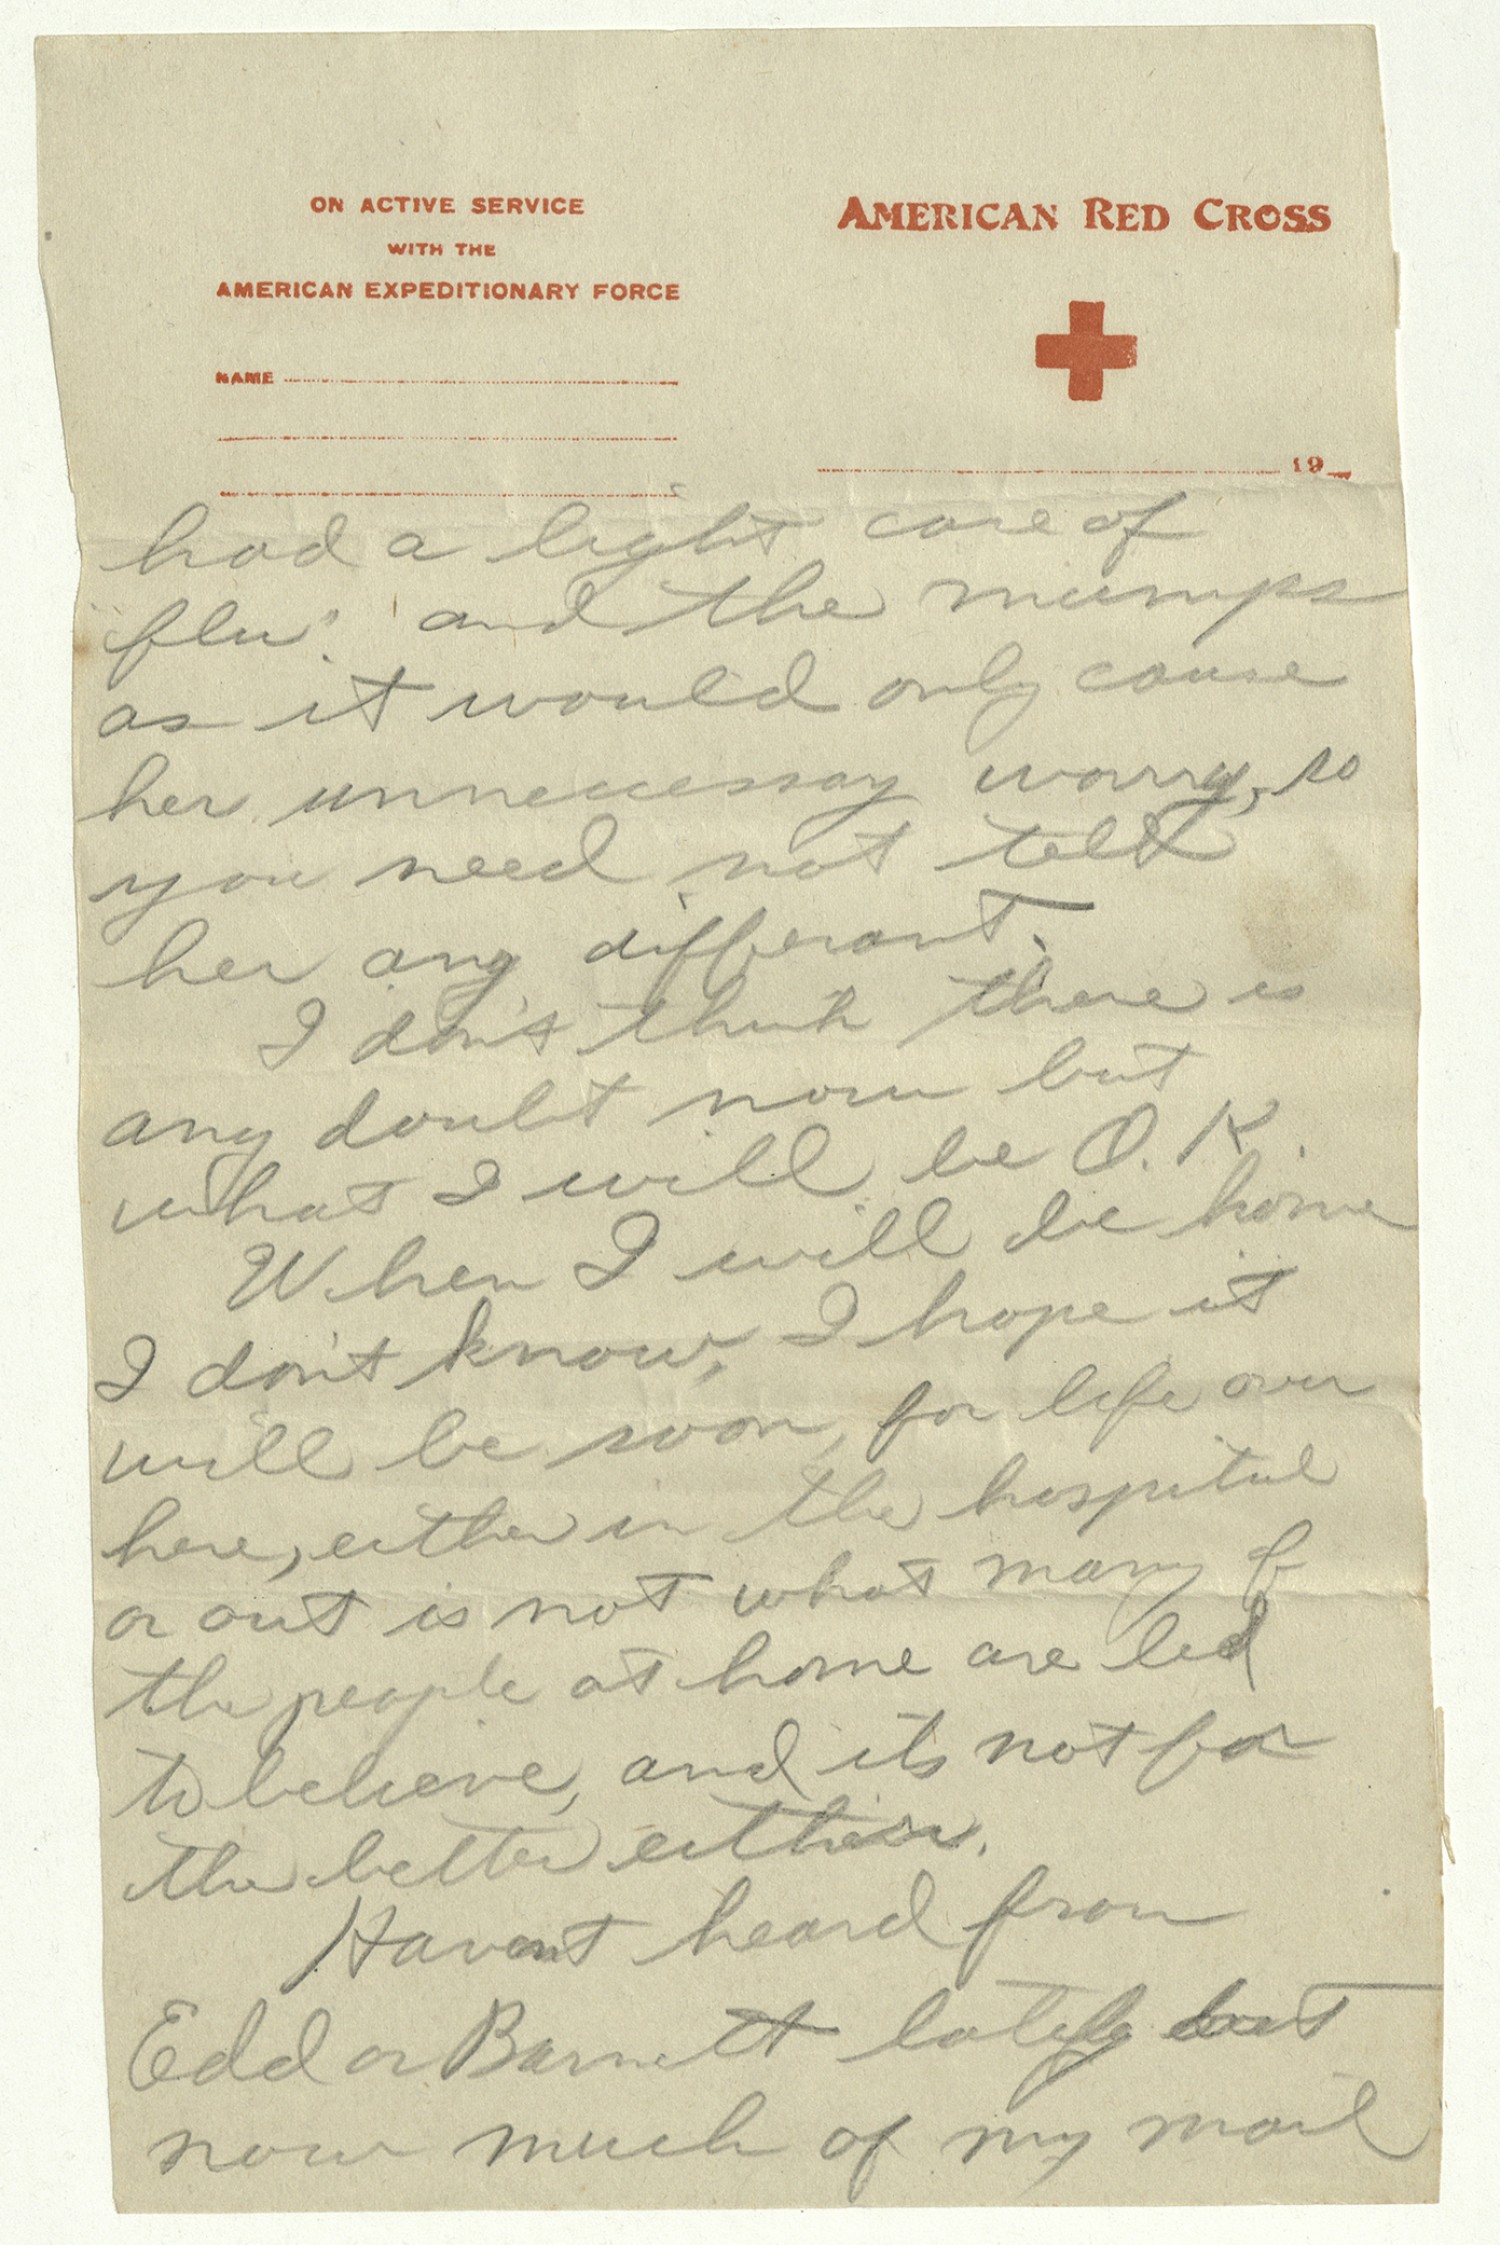 ON ACTIVE SERVICE
WITH THE
AMERICAN EXPEDITIONARY FORCE
NAME
AMERICAN RED CROSS
19
had a light case of
"flu" and the mumps
as it would only cause
her unnecessay worry, so
you need not tell
her any differant.
I don't think there is
any doubt now but
what I will be O.K.
When I will be home
I don't know, I hope it
will be soon, for life over
here, either in the hospital
or out is not what many of
the people at home are led
to believe, and its not for
the better either.
Havent heard from
Edd or Barnett lately but
now much of my mail